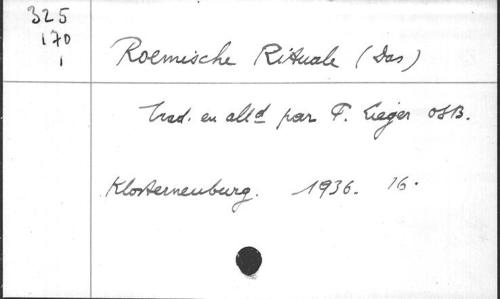 325
170
1
Roemische Rituale (Das)
trad. en alld par P. Lieger OSB.
Klosterneuburg. 1936. 16.